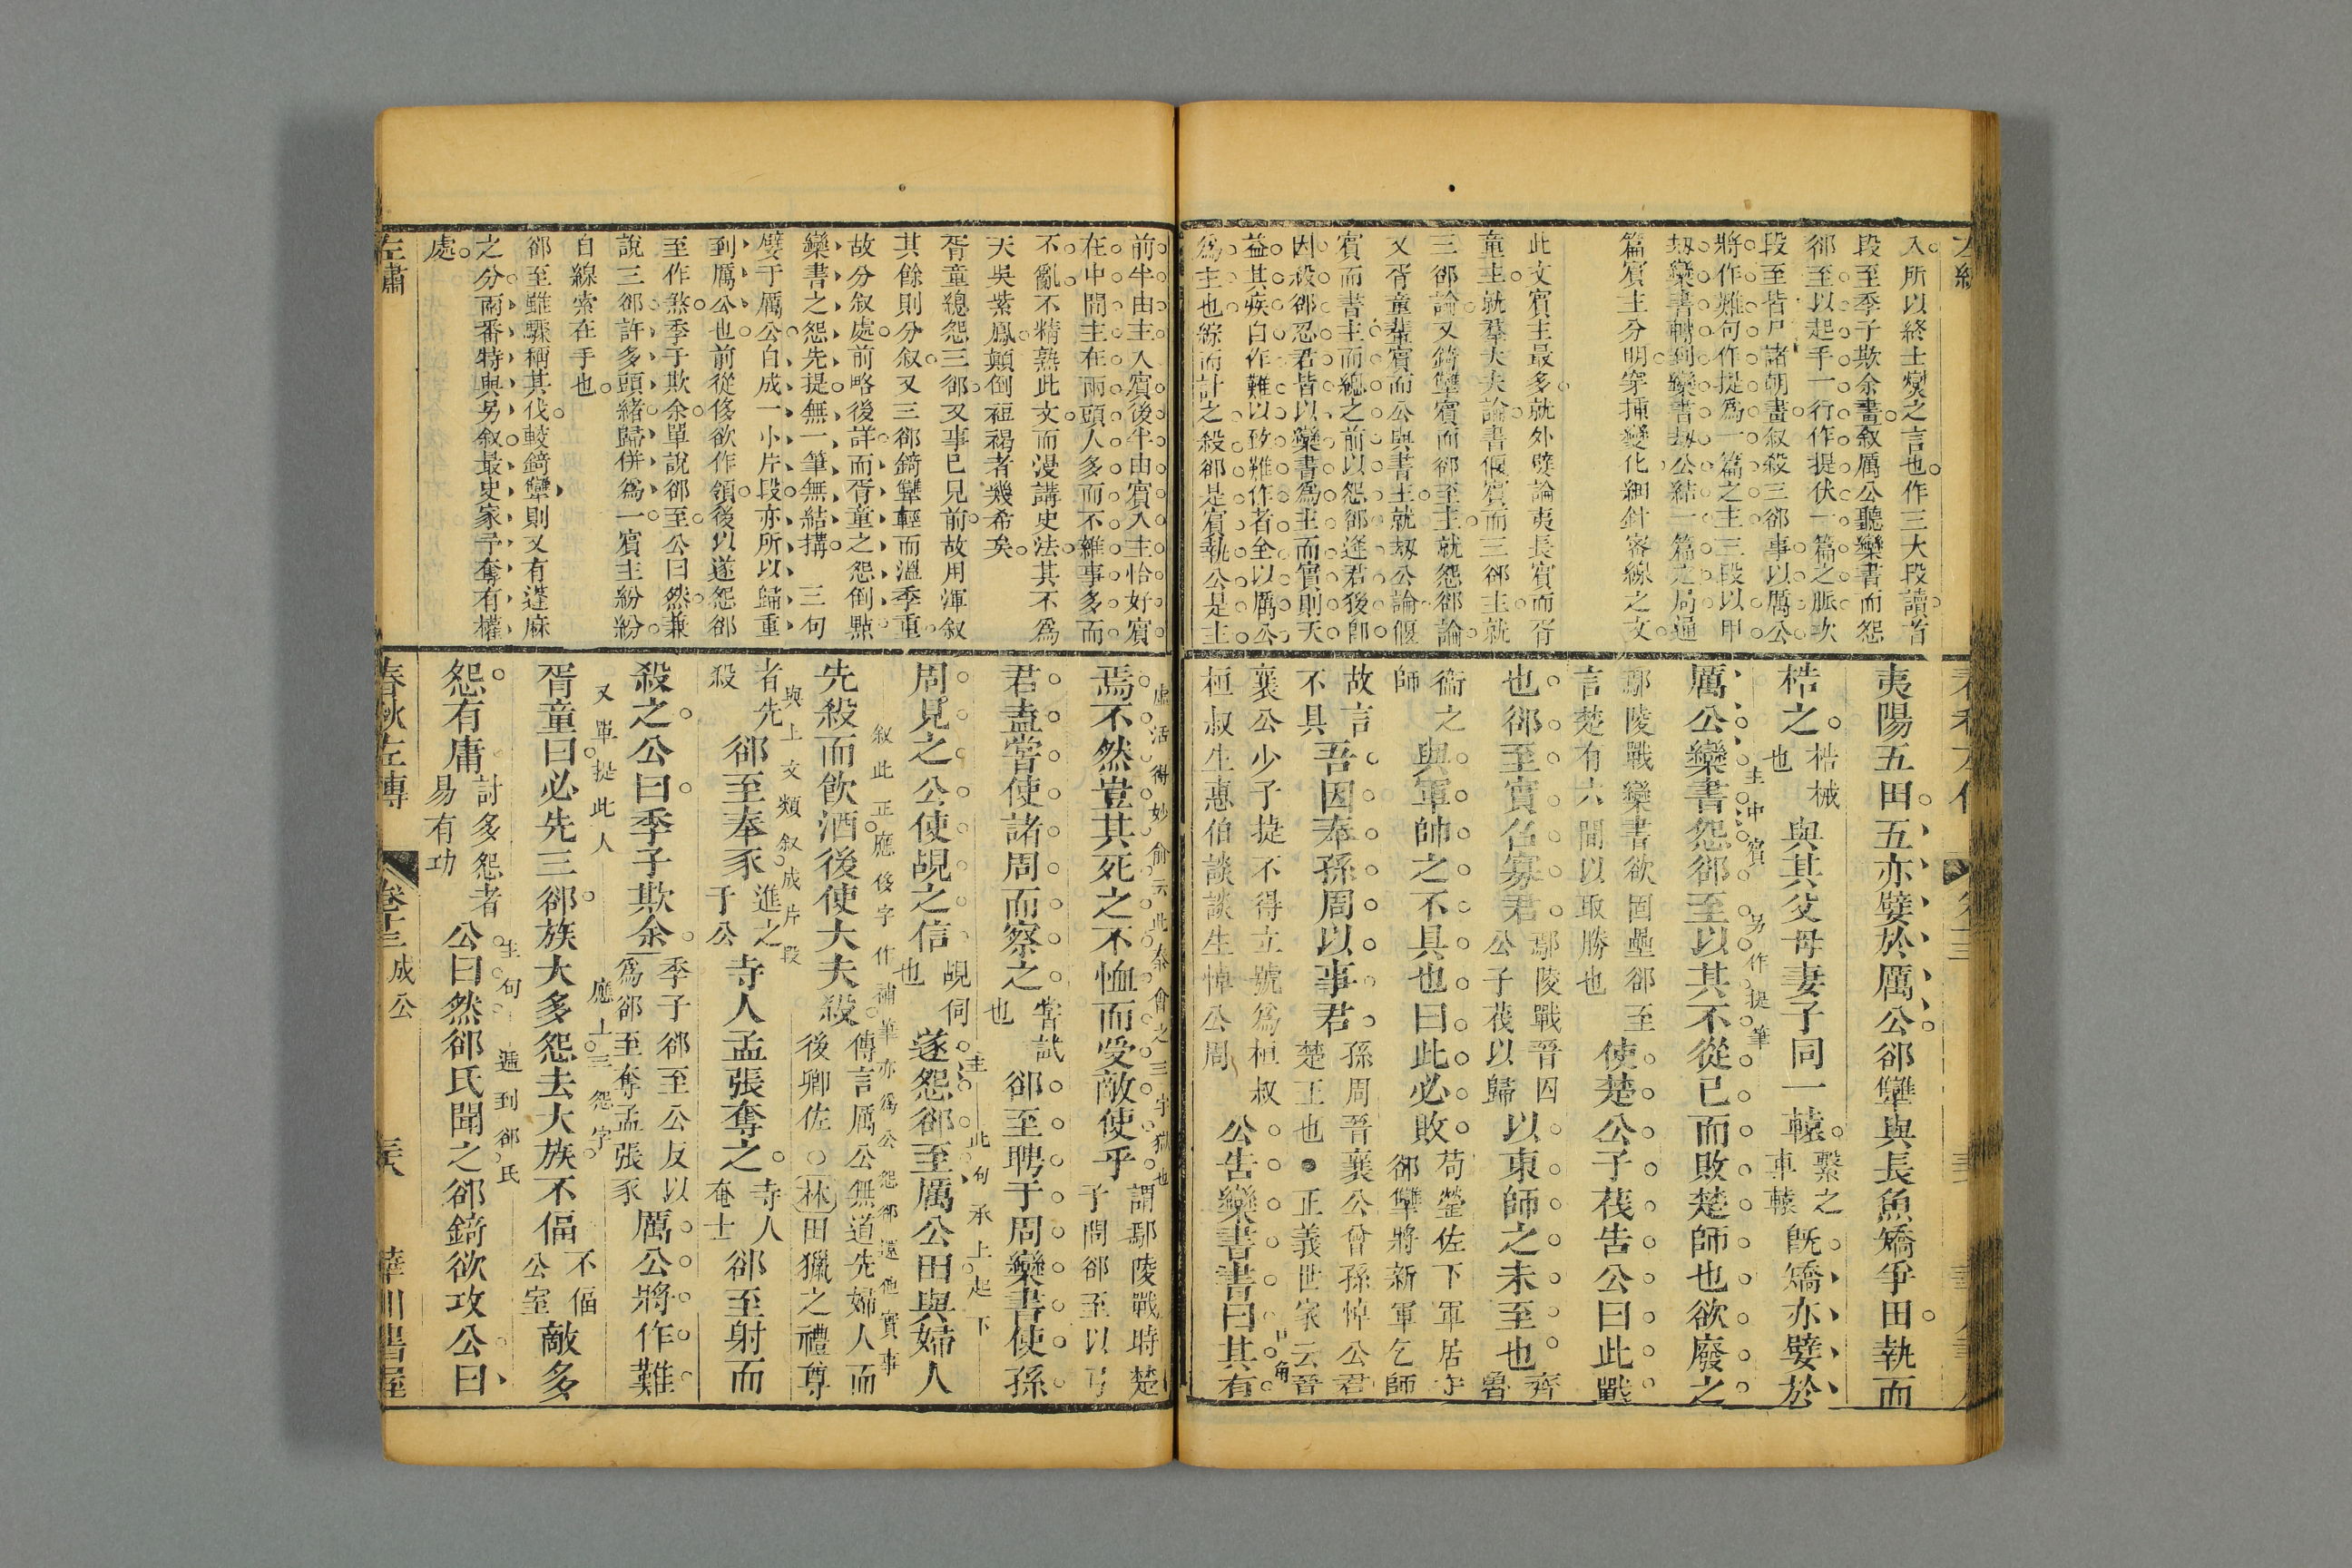 入所以終士燮之言也作三大段讀首
段至季子欺余書叙厲公聽欒書而怨
郤至以起手一行作提伏一篇之脈次
段至皆尸諸朝畫叙殺三郤事以厲公
將作難句作提爲一篇之主三段以甲
刼欒書轉到欒書刼公結一篇之局通
篇賓主分明穿揷變化細針密線之文
此文賓主最多就外嬖論夷長賓而胥
童主就羣大夫論書偃賓而三郤主就
三郤論又錡犨賓而郤至主就怨郤論
又胥童輩賓而公與書主就刼公論偃
賓而書主而總之前以怨郤逢君後卽
因殺郤忍君皆以欒書爲主而實則天
益其疾自作難以致難作者全以厲公
爲主也綜而計之殺郤是賓執公是主
夷陽五田五亦嬖於厲公郤犨與長魚矯爭田執而
梏之梏械也與其父母妻子同一轅繫之車轅旣矯亦嬖於
厲公欒書怨郤至以其不從已而敗楚師也欲廢之
主中賓 另作提筆
鄢陵戰欒書欲固壘郤至言楚有六間以取勝也使楚公子茷告公曰此戰
也郤至實召寡君鄢陵戰晉囚公子茷以歸以東師之未至也齊魯
衞之師與軍帥之不具也曰此必敗荀罃佐下軍居守郤犨將新軍乞師
故言不具吾因奉孫周以事君孫周晉襄公曾孫悼公君楚王也●正義世家云晉
襄公少子捷不得立號爲桓叔桓叔生惠伯談談生悼公周公告欒書書曰其有
前半由主入賓後半由賓入主恰好賓
在中間主在兩頭人多而不雜事多而
不亂不精熟此文而漫講史法其不爲
天吳紫鳳顛倒裋褐者幾希矣
胥童總怨三郤又事已見前故用渾叙
其餘則分叙又三郤錡犨輕而溫季重
故分叙處前略後詳而胥童之怨倒點
欒書之怨先提無一筆無結搆 三句
嬖于厲公自成一小片段亦所以歸重
到厲公也前從侈欲作領後以遂怨郤
至作煞季子欺余單說郤至公曰然兼
說三郤許多頭緒歸併爲一賓主紛紛
自線索在手也
郤至雖驟稱其伐較錡犨則又有蓬麻
之分兩番特與另叙最史家予奪有權
處
虛活得妙俞云此秦會之三字獄也
焉不然豈其死之不恤而受敵使乎謂鄢陵戰時楚子問郤至以弓
君盍嘗使諸周而察之嘗試也郤至聘于周欒書使孫
周見之公使覘之信覘伺也遂怨郤至厲公田與婦人
主 此句承上起下
叙此正應侈字作補筆亦爲公怨郤還他實事
先殺而飮酒後使大夫殺傳言厲公無道先婦人而後卿佐○林田獵之禮尊
與上文類叙成片段
者先殺郤至奉豕進之于公寺人孟張奪之寺人奄士郤至射而
殺之公曰季子欺余季子郤至公反以爲郤至奪孟張豕厲公將作難
又單提此人 應上三怨字
胥童曰必先三郤族大多怨去大族不偪不偪公室敵多
怨有庸討多怨者易有功公曰然郤氏聞之郤錡欲攻公曰
主句 遞到郤氏
左繡
春秋左傳 卷十三 成公
華川書屋